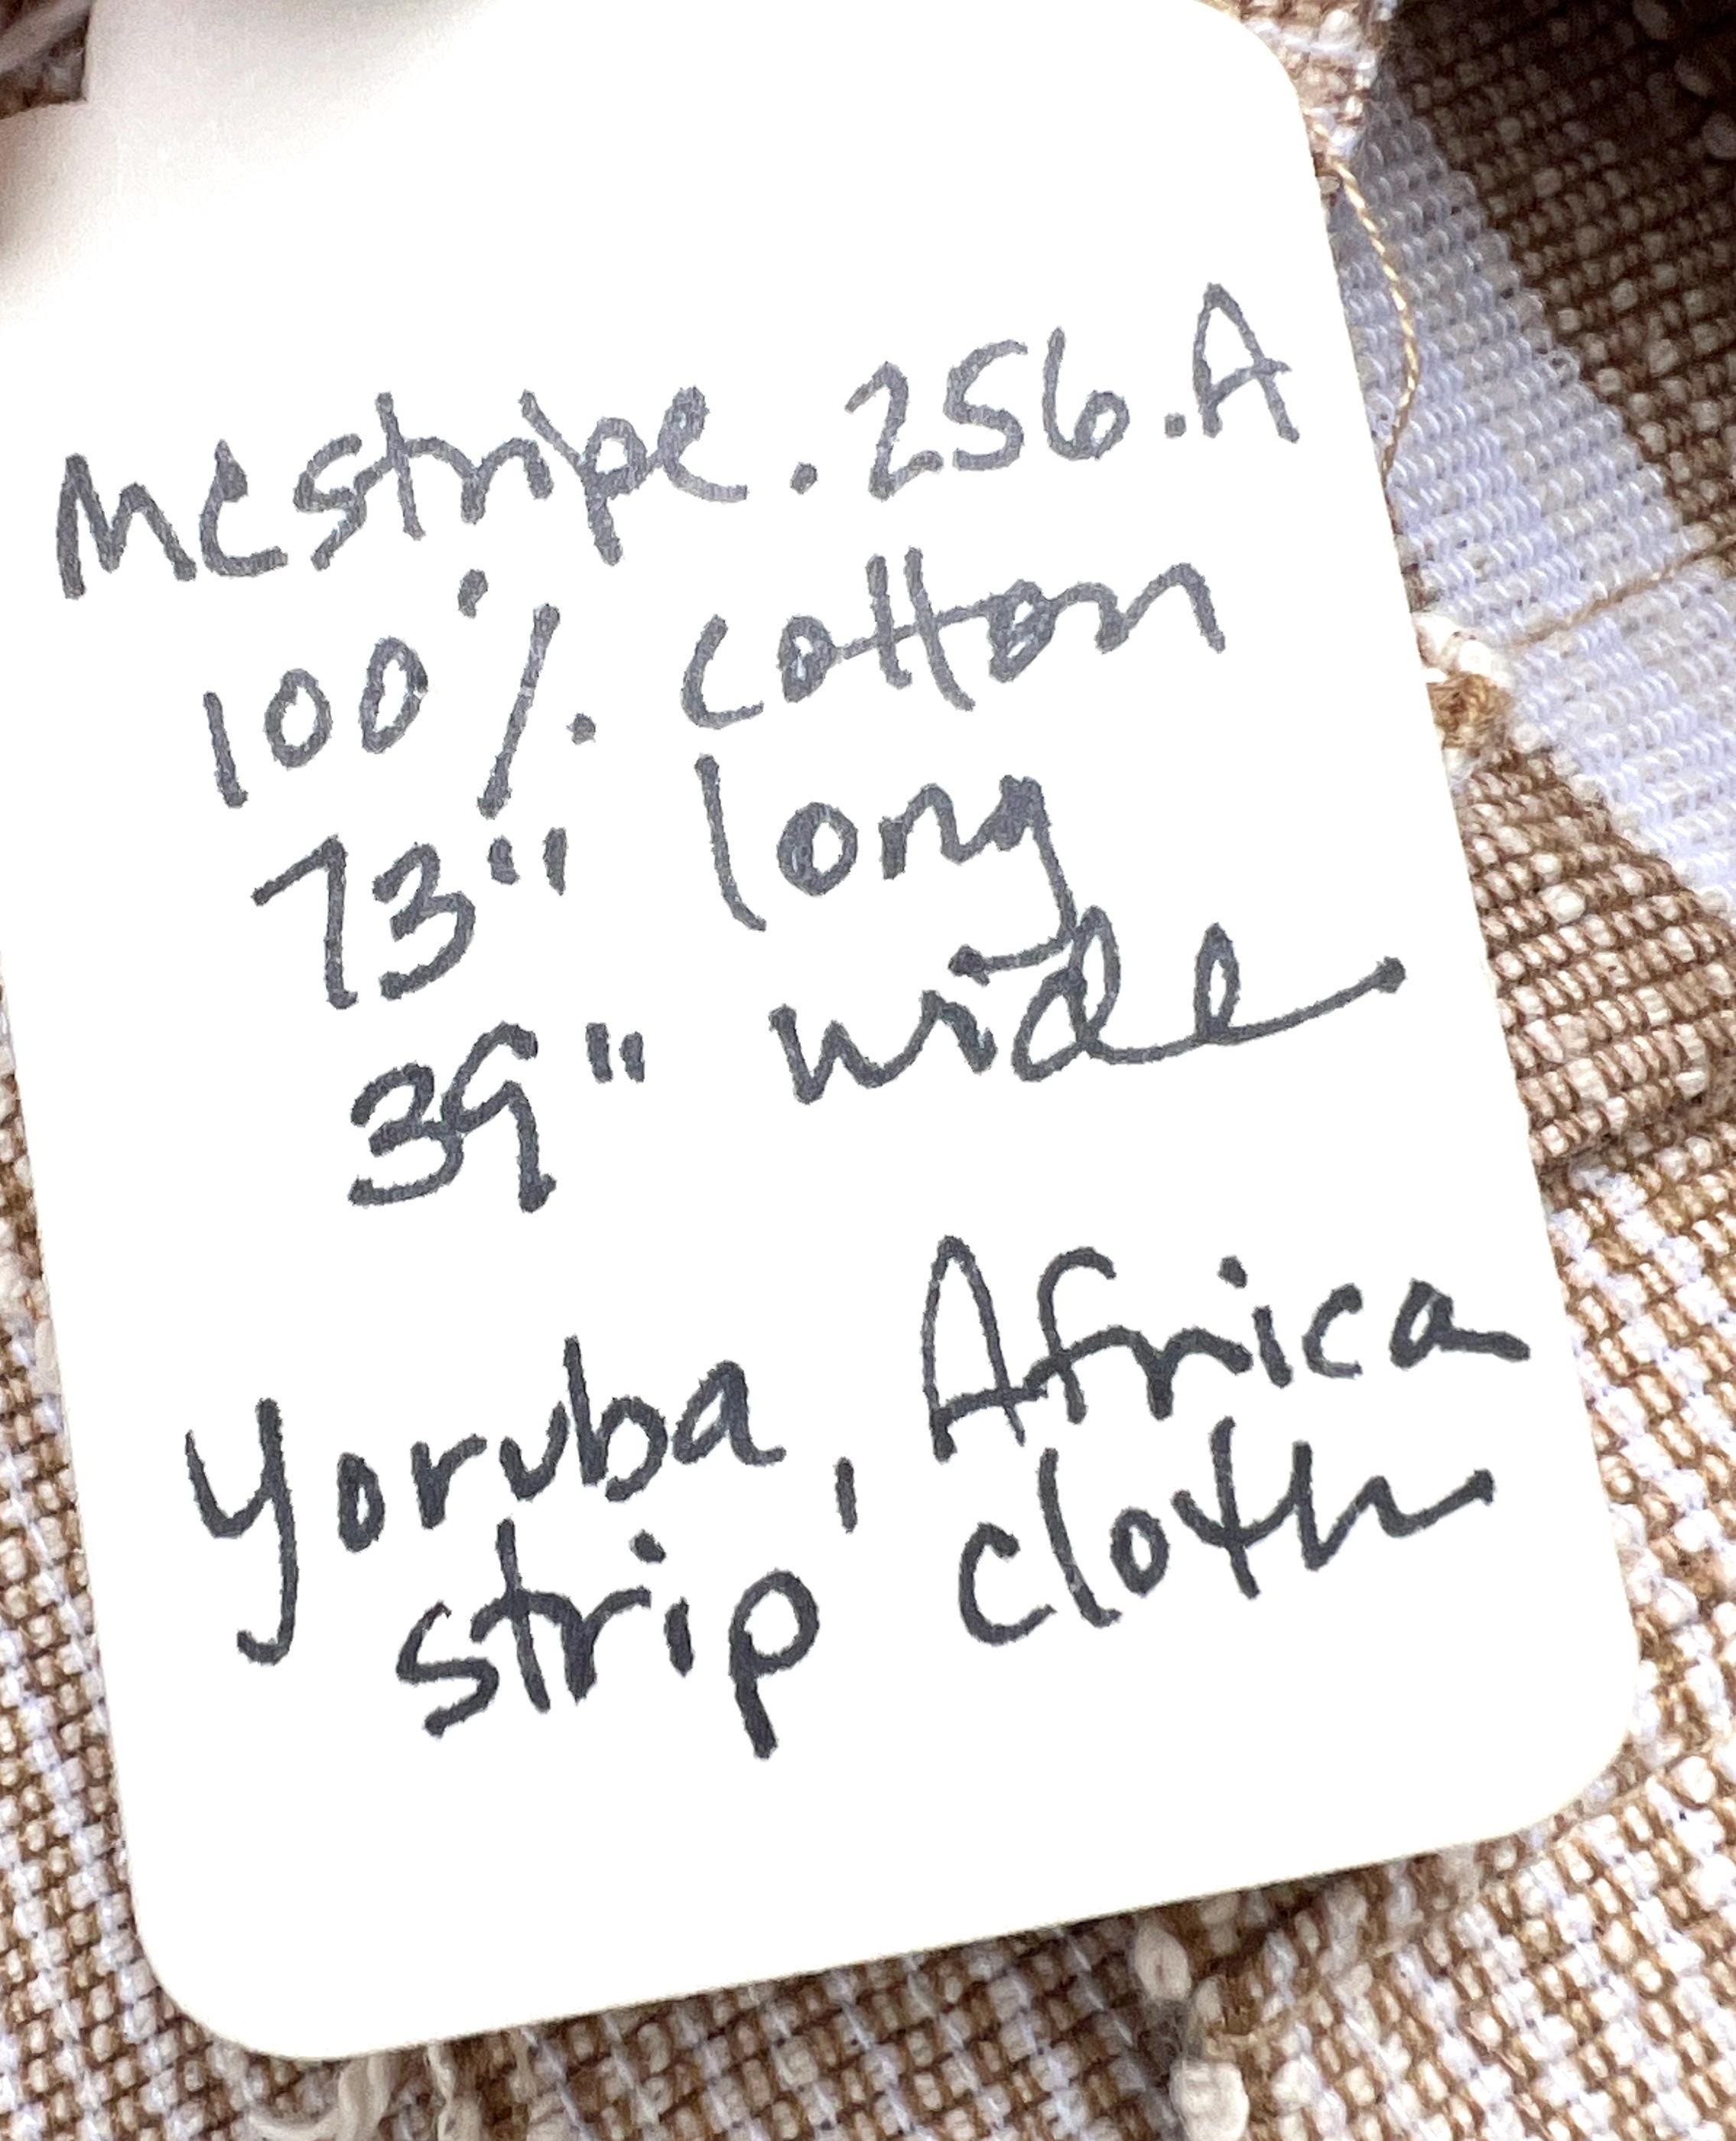 Mcstripe.256.A
100% cotton
73" long
39" wide
Yoruba, Africa
strip cloth